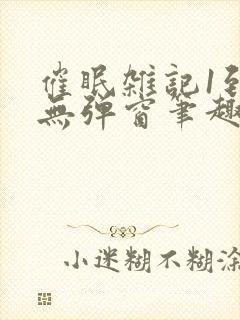 催眠雑記1到
無彈窗筆趣
小迷糊不糊涂